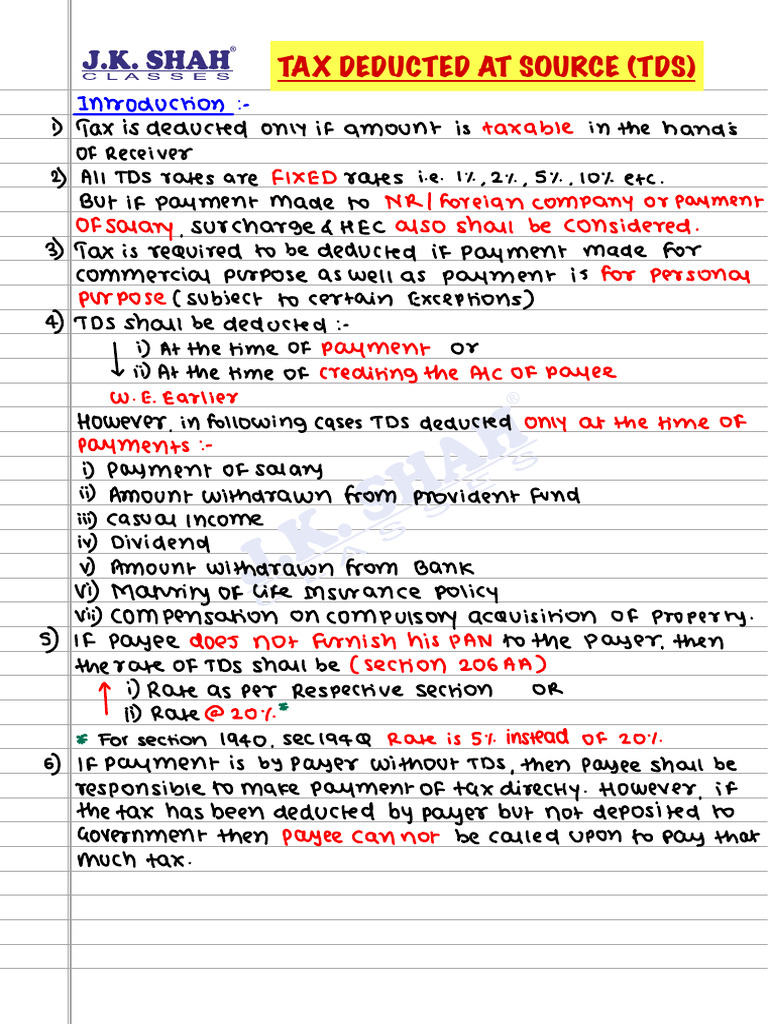 J.K. SHAH®
CLASSES
TAX DEDUCTED AT SOURCE (TDS)
Introduction :-
1) Tax is deducted only if amount is taxable in the hand's
of Receiver
2) All TDS rates are FIXED rates i.e. 1%, 2%, 5%, 10% etc.
But if payment made to NR/foreian company or payment
of salary, surcharge & HEC also shall be considered.
3) Tax is required to be deducted if payment made for
commercial purpose as well as payment is for personal
purpose (subject to certain Exceptions)
4) TDS shall be deducted :-
↓ i) At the time of payment or
ii) At the time of crediting the A/C of payee
W. E. Earlier
However, in following cases TDS deducted only at the time of
payments :-
i) Payment of salary
ii) Amount withdrawn from provident fund
iii) Casual Income
iv) Dividend
v) Amount withdrawn from Bank
vi) Maturity of Life Insurance policy
vii) Compensation on compulsory acquisition of property.
5) If payee does not furnish his PAN to the payer, then
the rate of TDS shall be (section 206AA)
↑ i) Rate as per Respective section OR
ii) Rate @ 20%.*
* For section 194O, sec194Q Rate is 5% instead of 20%.
6) If payment is by payer without TDS, then payee shall be
responsible to make payment of tax directly. However, if
the tax has been deducted by payer but not deposited to
Government then payee cannot be called upon to pay that
much tax.
J.K. SHAH®
CLASSES